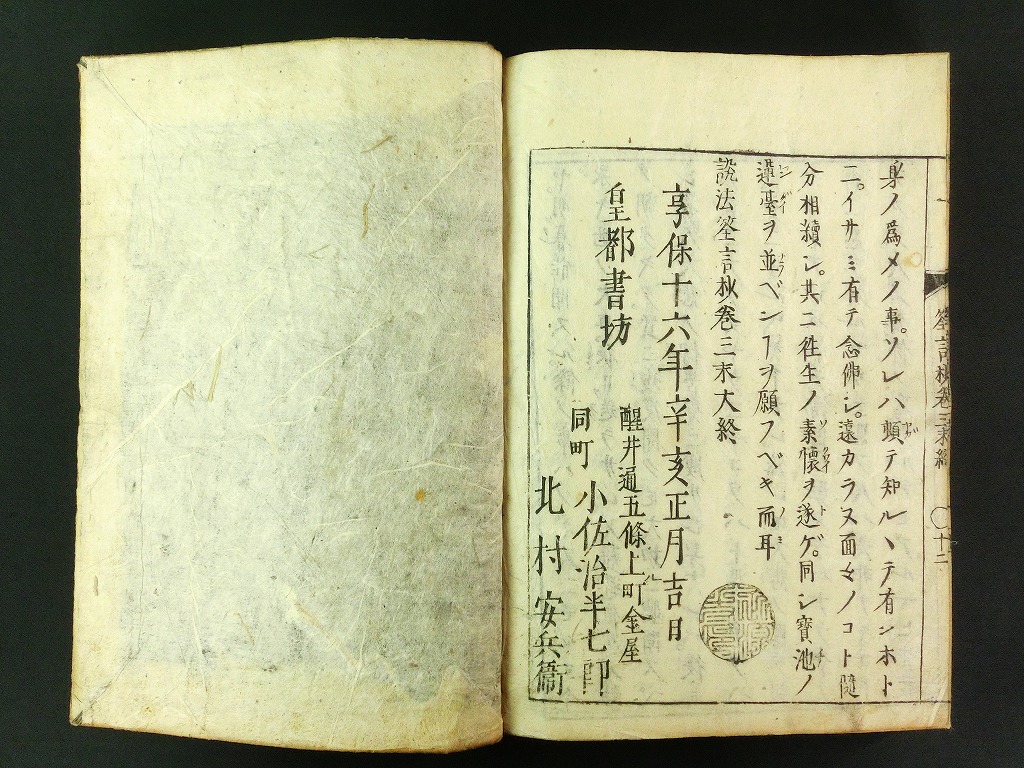 筌言抄卷三末終 〇十二
畢ノ爲メノ事。ソレハ頓テ知ル丶テ有ンホト
ニ。イサミ有テ念佛シ。遠カラヌ面々ノコト隨
分相續シ。其ニ徃生ノ素懷ヲ遂ゲ。同シ寶池ノ
蓮臺ヲ並ベンヿヲ願フベキ而耳
説法筌言抄卷三末大終
享保十六年辛亥正月吉日
皇都書坊
醒井通五條上町金屋
小佐治半七郎
同町
北村安兵衞